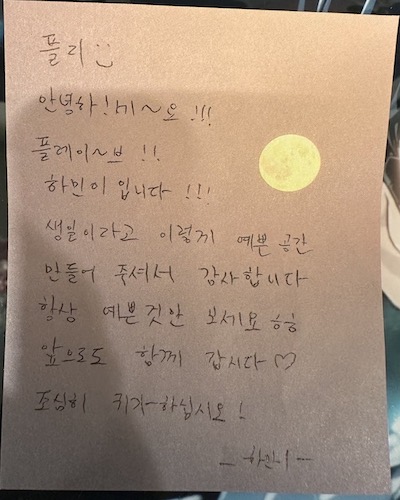 플리 :)
안녕하!세~요 !!!
플레이~브 !!
하민이 입니다 !!!
생일이라고 이렇게 예쁜 공간
만들어 주셔서 감사합니다
항상 예쁜것만 보세요 ㅎㅎ
앞으로도 함께 갑시다 ♡
조심히 귀가~하십시오 !
- 하민이 -